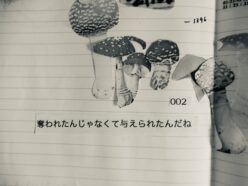 — 1396
:002
奪われたんじゃなくて与えられたんだね